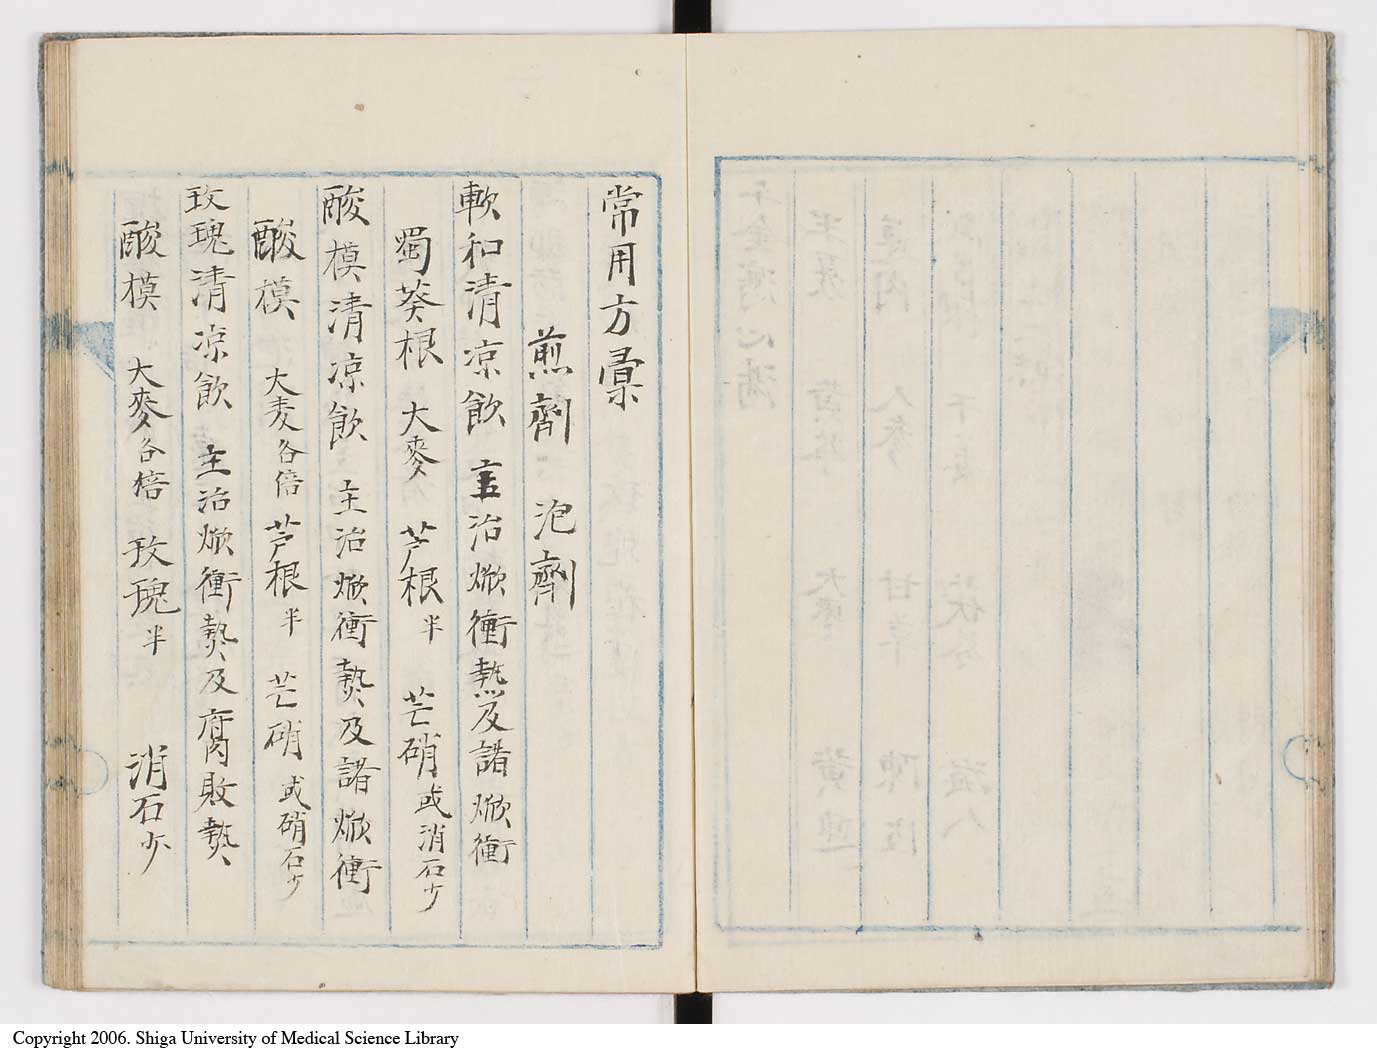 常用方彙
煎劑 泡劑
軟和清凉飲 主治焮衝熱及諸焮衝
蜀葵根 大麥 芦根半 芒硝或消石少
酸模清凉飲 主治焮衝熱及諸焮衝
酸模 大麦各倍 芦根半 芒硝或硝石少
玫瑰清凉飲 主治焮衝熱及腐敗熱
酸模 大麥各倍 玫瑰半 消石少
Copyright 2006. Shiga University of Medical Science Library